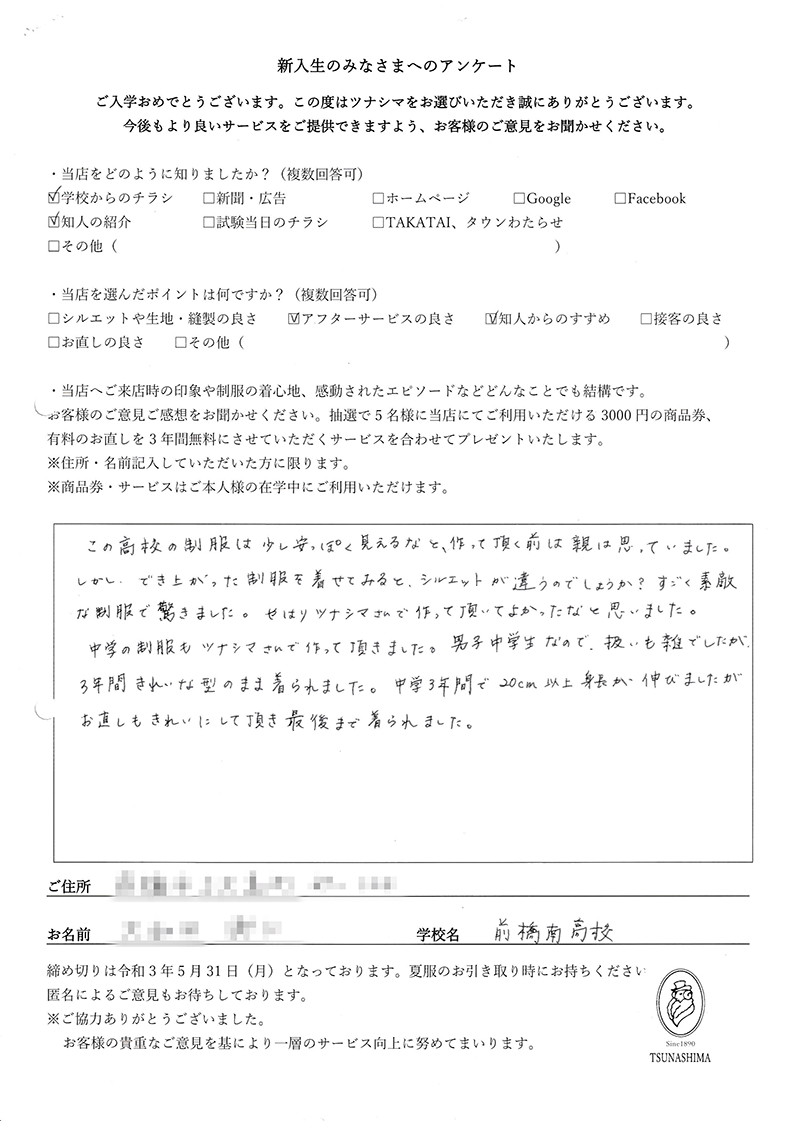 新入生のみなさまへのアンケート
ご入学おめでとうございます。この度はツナシマをお選びいただき誠にありがとうございます。
今後もより良いサービスをご提供できますよう、お客様のご意見をお聞かせください。
・当店をどのように知りましたか？（複数回答可）
☑学校からのチラシ　□新聞・広告　□ホームページ　□Google　□Facebook
☑知人の紹介　□試験当日のチラシ　□TAKATAI、タウンわたらせ
□その他（　）
・当店を選んだポイントは何ですか？（複数回答可）
□シルエットや生地・縫製の良さ　☑アフターサービスの良さ　☑知人からのすすめ　□接客の良さ
□お直しの良さ　□その他（　）
・当店へご来店時の印象や制服の着心地、感動されたエピソードなどどんなことでも結構です。
お客様のご意見ご感想をお聞かせください。抽選で５名様に当店にてご利用いただける 3000 円の商品券、
有料のお直しを３年間無料にさせていただくサービスを合わせてプレゼントいたします。
※住所・名前記入していただいた方に限ります。
※商品券・サービスはご本人様の在学中にご利用いただけます。
この高校の制服は少し安っぽく見えるなと、作って頂く前は親は思っていました。
しかし、でき上がった制服を着せてみると、シルエットが違うのでしょうか？すごく素敵
な制服で驚きました。せはりツナシマさんで作って頂いてよかったなと思いました。
中学の制服もツナシマさんで作って頂きました。男子中学生なので、扱いも雑でしたが、
3年間きれいな型のまま着られました。中学3年間で20cm以上身長が伸びましたが
お直しもきれいにして頂き最後まで着られました。
ご住所
お名前　学校名　前橋南高校
締め切りは令和３年５月 31 日（月）となっております。夏服のお引き取り時にお持ちください
匿名によるご意見もお待ちしております。
※ご協力ありがとうございました。
お客様の貴重なご意見を基により一層のサービス向上に努めてまいります。
Sine1890
TSUNASHIMA